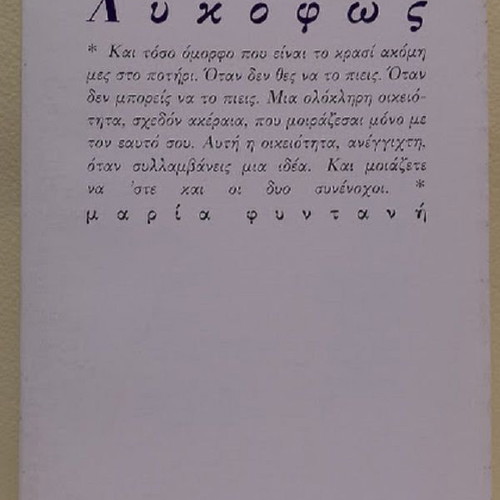 Λυκόφως
* Και τόσο όμορφο που είναι το κρασί ακόμη
μες στο ποτήρι. Όταν δεν θες να το πιεις. Όταν
δεν μπορείς να το πιεις. Μια ολόκληρη οικειό-
τητα, σχεδόν ακέραια, που μοιράζεσαι μόνο με
τον εαυτό σου. Αυτή η οικειότητα, ανέγγιχτη,
όταν συλλαμβάνεις μια ιδέα. Και μοιάζετε
να 'στε και οι δυο συνένοχοι. *
μαρία φυντανή